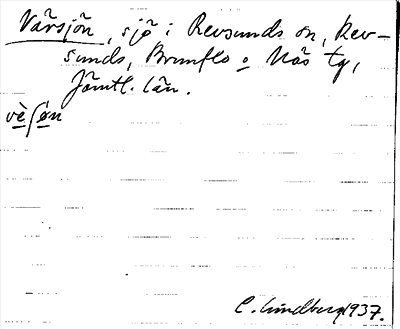 Värsjön, sjö i Revsunds sn, Rev-
sunds, Brunflo o Näs tg,
Jämtl. län.
vè̱ʃø̱n
C. Lindberg 1937.